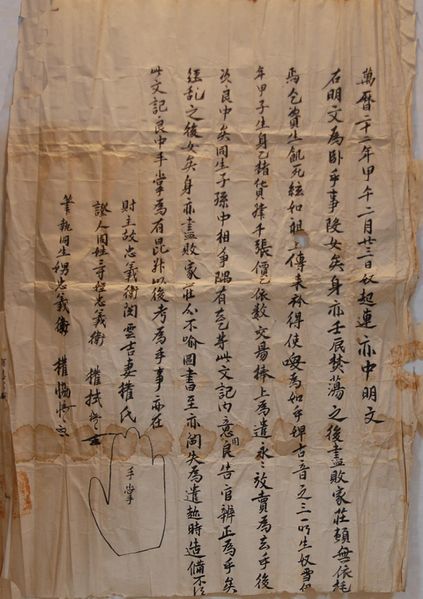 萬曆二十二年甲午二月廿三日奴起連亦中明文
右明文為臥乎事段女矣身亦壬辰焚蕩之後盡敗家莊頼無依托
乞資生飢死絃如祖上傳来衿得使喚為如乎婢古音之三所生奴雪
年甲子生身乙 張價乙依數交易捧上為遣永々放賣為去乎後
次良中矣同生子孫中相爭隅有去乙等此文記內意用良告官辨正為乎矣
經乱之後女矣身亦盡敗家莊兺不喻圖書至亦閪失為遣趂時造備不
此文記良中手掌為有昆 以後考為乎事亦在
財主故忠義衛閔雲吉妻權氏
手掌
證人同姓三寸姪忠義衛 權拭
筆執同生娚忠義衛 權